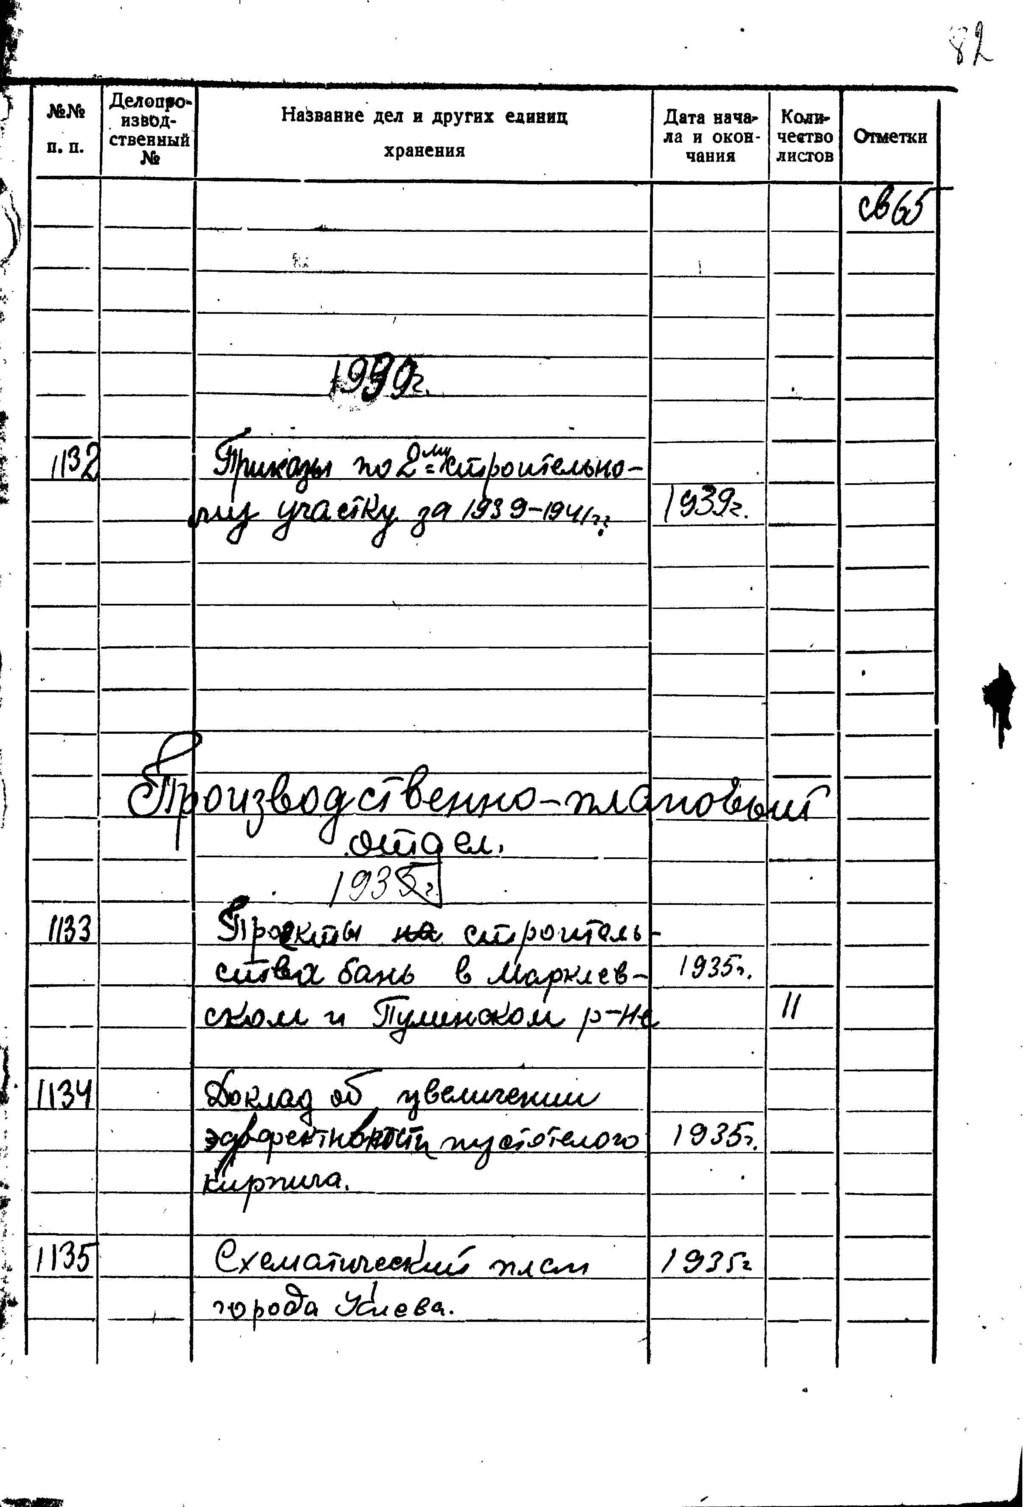 82
№№ п. п.
Делопро-
извод-
ственный
№
Название дел и других единиц
хранения
Дата нача-
ла и окон-
чания
Коли-
чество
листов
Отметки
св 65
1939г.
1132 Приказы по 2 му строительно-
му участку за 1939-1941гг. 1939г.
Производственно-плановый
отдел.
1935г.
1133 Проекты на строитель-
ства бань в Марклев- 1935г.
ском и Пулинском р-не 11
1134 Доклад об увеличении
эффективности пустотелого 1935г.
кирпича.
1135 Схематический план 1935г
города Киева.